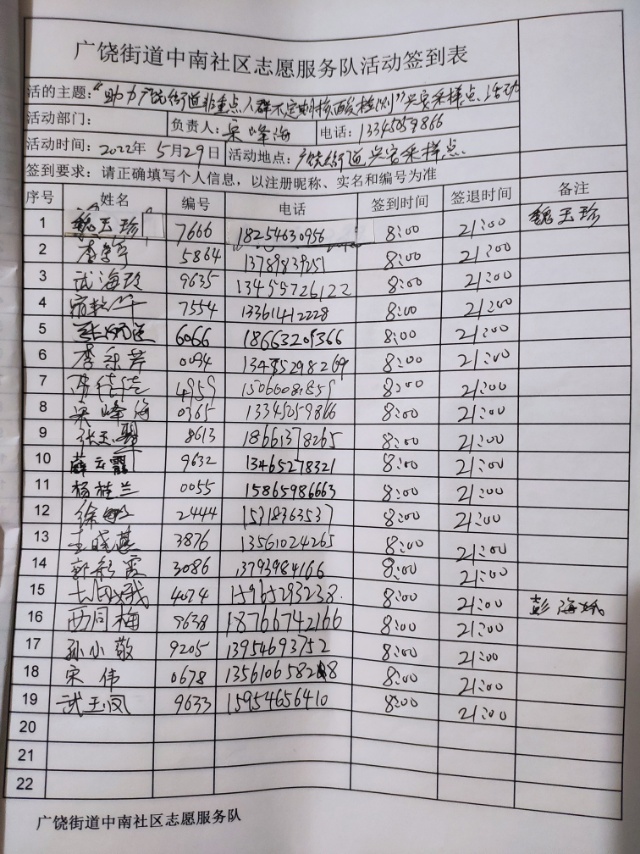 广饶街道中南社区志愿服务队活动签到表
活的主题:“助力广饶街道非重点人群不定期核酸检测”兴安采样点 活动
活动部门: 负责人: 宋峰海 电话: 13345059866
活动时间: 2022年 5月29日 活动地点: 广饶街道兴安采样点
签到要求: 请正确填写个人信息，以注册昵称、实名和编号为准
序号 姓名 编号 电话 签到时间 签退时间 备注
1 魏玉珍 7666 18254630956 8:00 21:00 魏玉珍
2 5864 8:00 21:00
3 武海玲 9635 13455726122 8:00 21:00
4 7554 13361412228 8:00 21:00
5 6066 18663205366 8:00 21:00
6 李采芹 0094 13485298269 8:00 21:00
7 4959 8:00 21:00
8 宋峰海 0365 13345059866 8:00 21:00
9 张玉翠 8613 18661378265 8:00 21:00
10 薛云霞 9632 13465278321 8:00 21:00
11 杨桂兰 0055 15865986663 8:00 21:00
12 徐 2444 15318363537 8:00 21:00
13 3876 13561024265 8:00 21:00
14 郭彩霞 3086 13793984166 8:00 21:00
15 4074 8:00 21:00 彭海娥
16 西同梅 9638 18766742166 8:00 21:00
17 孙小敬 9205 13954693752 8:00 21:00
18 宋伟 0678 8:00 21:00
19 武玉凤 9633 15954656410 8:00 21:00
20
21
22
广饶街道中南社区志愿服务队